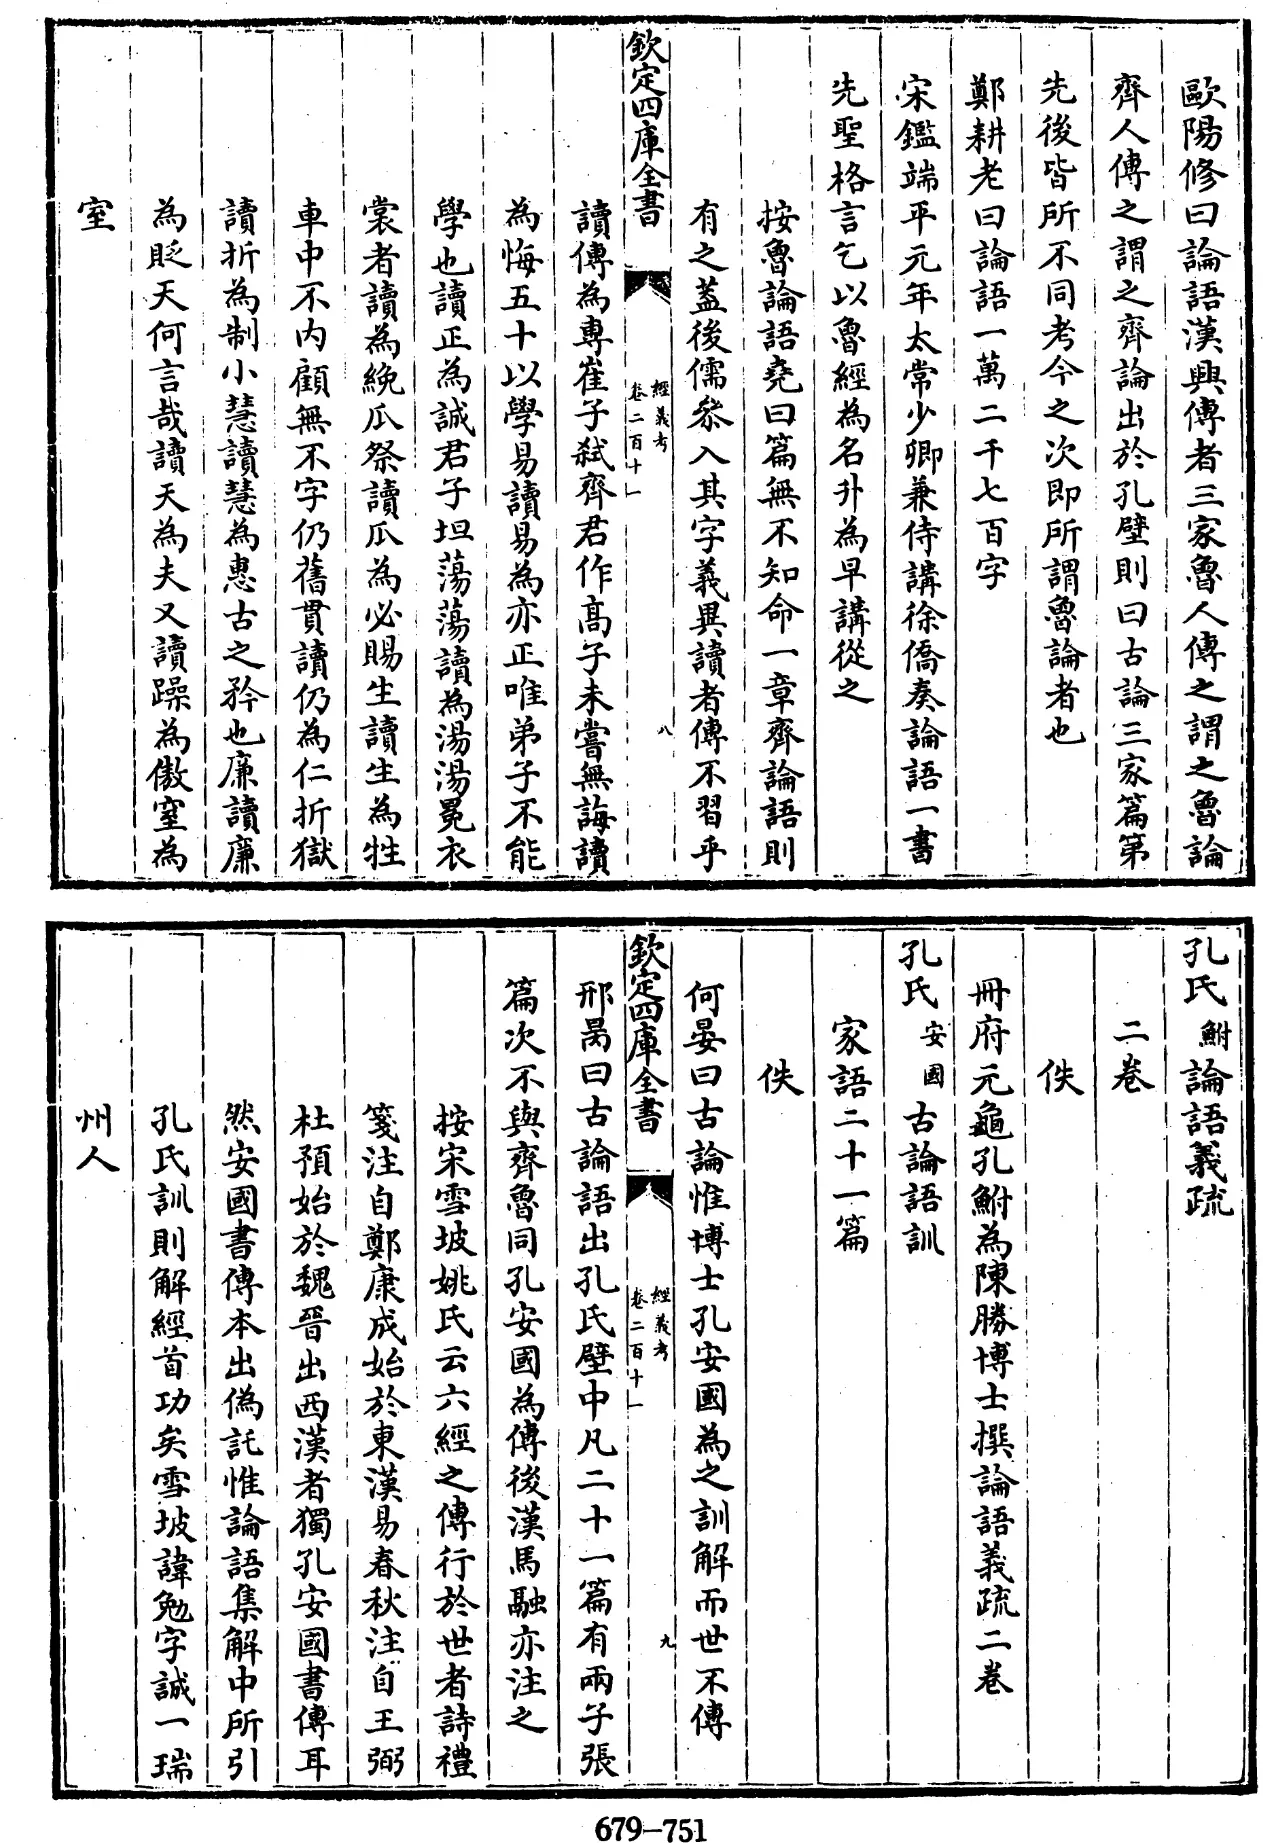 歐陽修曰論語漢興傳者三家魯人傳之謂之魯論
齊人傳之謂之齊論出於孔壁則曰古論三家篇第
先後皆所不同考今之次即所謂魯論者也
鄭耕老曰論語一萬二千七百字
宋鑑端平元年太常少卿兼侍講徐僑奏論語一書
先聖格言乞以魯經為名升為早講從之
按魯論語堯曰篇無不知命一章齊論語則
有之蓋後儒叅入其字義異讀者傳不習乎
欽定四庫全書
經義考
卷二百十一
八
讀傳為專崔子弑齊君作高子未嘗無誨讀
為悔五十以學易讀易為亦正唯弟子不能
學也讀正為誠君子坦蕩蕩讀為湯湯冕衣
裳者讀為絻瓜祭讀瓜為必賜生讀生為牲
車中不内顧無不字仍舊貫讀仍為仁折獄
讀折為制小慧讀慧為惠古之矜也廉讀廉
為貶天何言哉讀天為夫又讀躁為傲窒為
室
孔氏鮒論語義疏
二卷
佚
冊府元龜孔鮒為陳勝博士撰論語義疏二卷
孔氏安國古論語訓
家語二十一篇
佚
何晏曰古論惟博士孔安國為之訓解而世不傳
欽定四庫全書
經義考
卷二百十一
九
邢昺曰古論語出孔氏壁中凡二十一篇有兩子張
篇次不與齊魯同孔安國為傳後漢馬融亦注之
按宋雪坡姚氏云六經之傳行於世者詩禮
箋注自鄭康成始於東漢易春秋注自王弼
杜預始於魏晉出西漢者獨孔安國書傳耳
然安國書傳本出偽託惟論語集解中所引
孔氏訓則解經首功矣雪坡諱勉字誠一瑞
州人
679—751